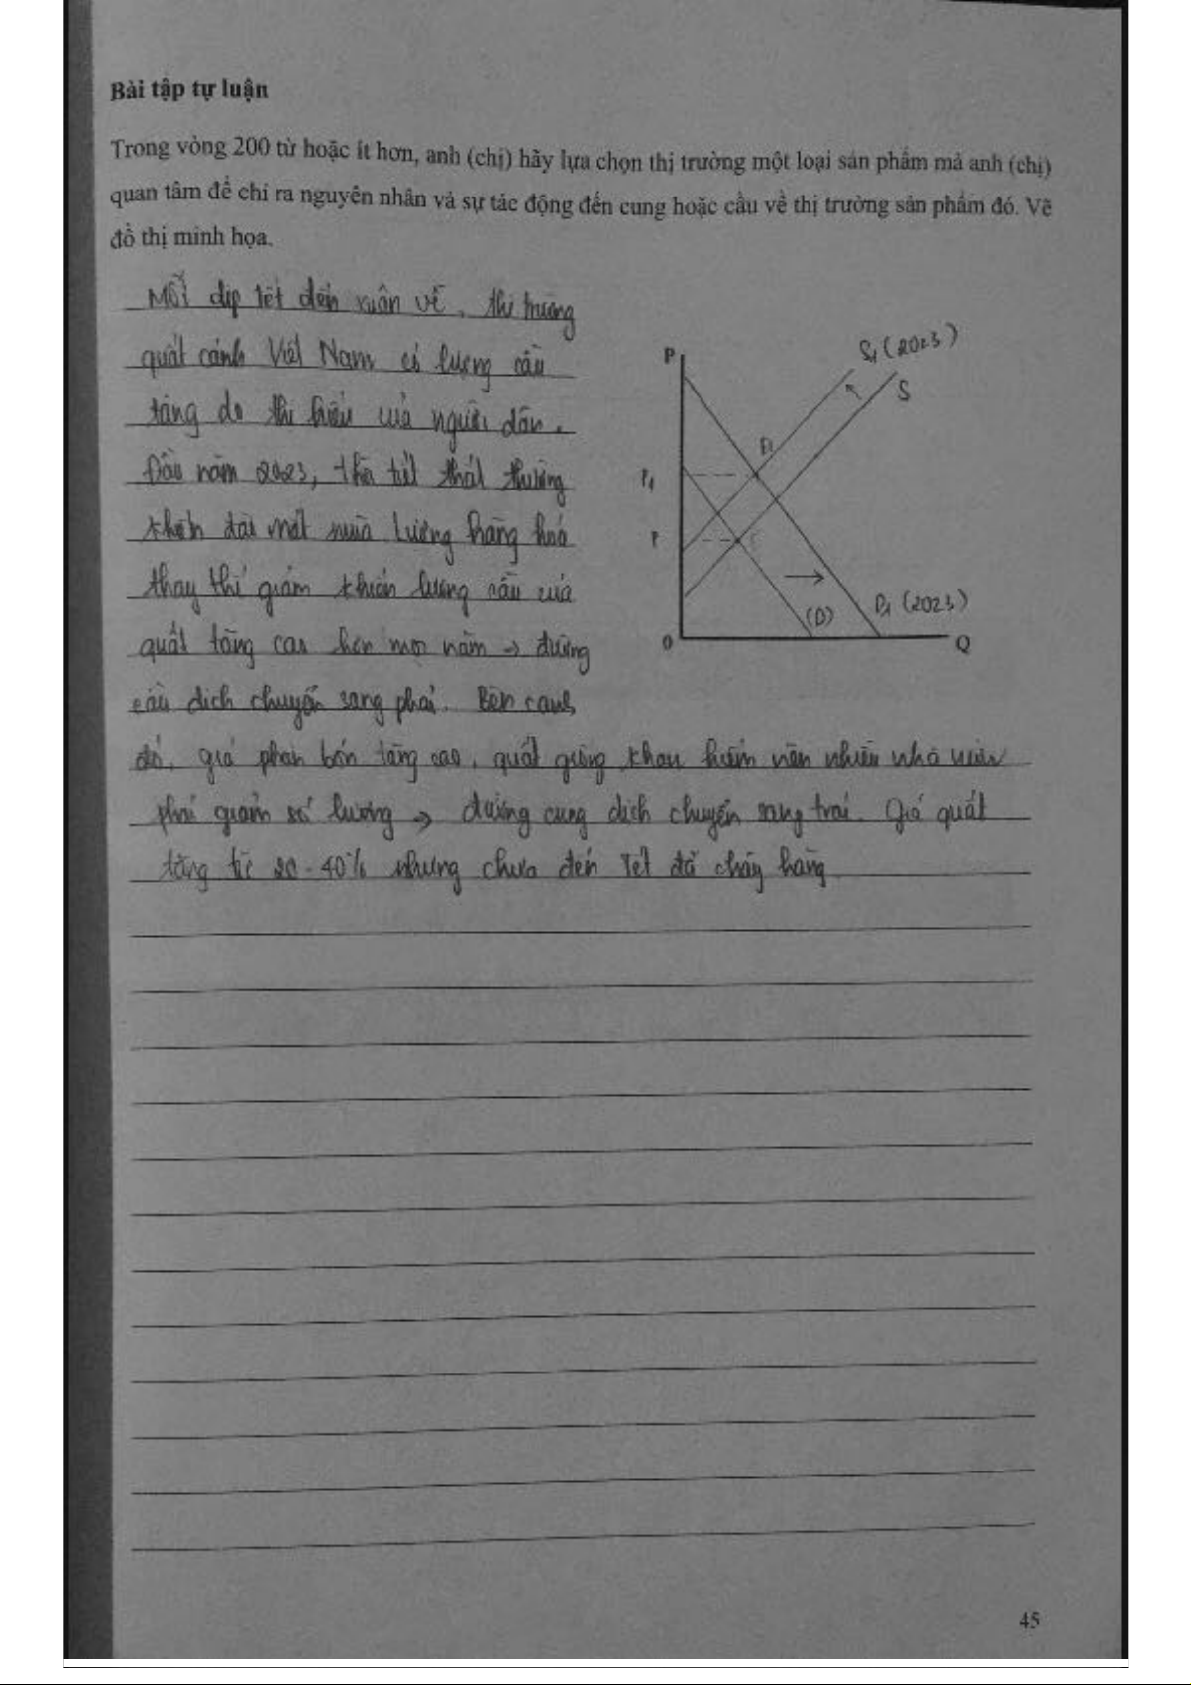 Bài tập tự luận
Trong vòng 200 từ hoặc ít hơn, anh (chị) hãy lựa chọn thị trường một loại sản phẩm mà anh (chị)
quan tâm để chỉ ra nguyên nhân và sự tác động đến cung hoặc cầu về thị trường sản phẩm đó. Vẽ
đồ thị minh họa.
Mỗi dịp Tết đến xuân về, thị trường
quất cảnh Việt Nam có lượng cầu
tăng do thị hiếu của người dân.
Đầu năm 2023, thời tiết thất thường
khiến đào mất mùa lượng hàng hoá
thay thế giảm khiến lượng cầu của
quất tăng cao hơn mọi năm → đường
cầu dịch chuyển sang phải. Bên cạnh
đó, giá phân bón tăng cao, quất giống khan hiếm nên nhiều nhà vườn
phải giảm số lượng → đường cung dịch chuyển sang trái. Giá quất
tăng từ 20 - 40% nhưng chưa đến Tết đã cháy hàng
P
S1 (2023)
S
P1
P
(D)
D1 (2023)
0
Q
45